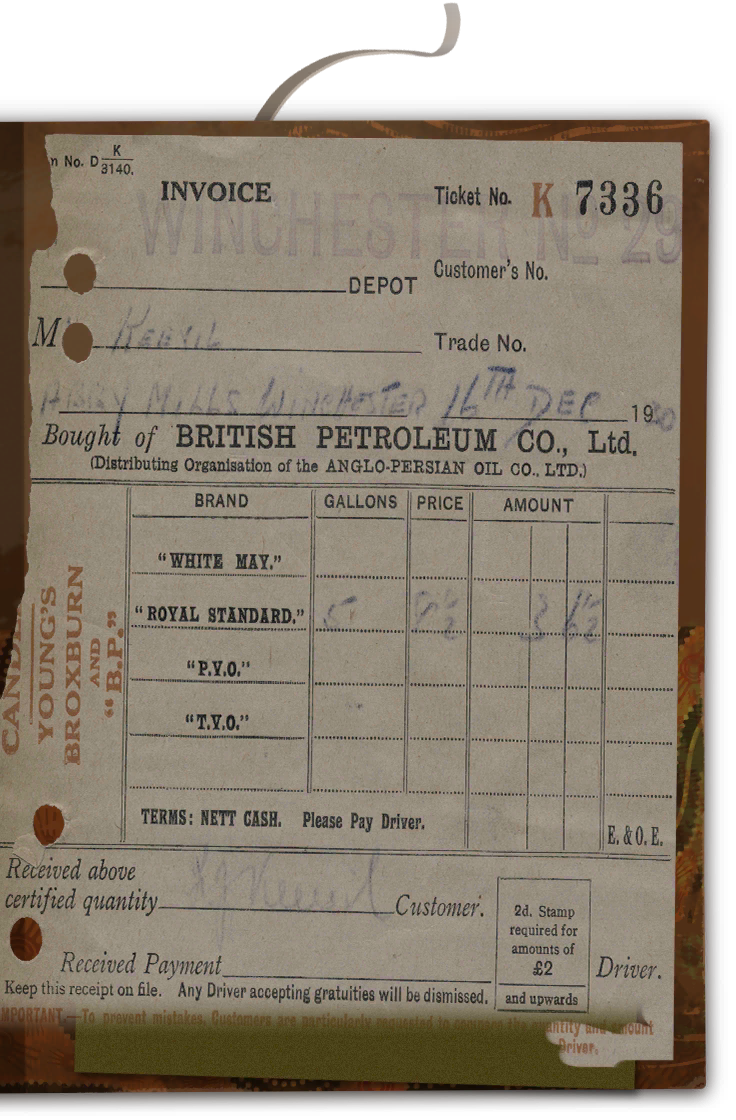 n No. D K/3140.
INVOICE
Ticket No. K 7336
WINCHESTER Nº 29
DEPOT
Customer's No.
M Keevil
Trade No.
Abbey Mills Winchester 16TH Dec 19
Bought of BRITISH PETROLEUM CO., Ltd.
(Distributing Organisation of the ANGLO-PERSIAN OIL CO., LTD.)
BRAND GALLONS PRICE AMOUNT
"WHITE MAY."
"ROYAL STANDARD." 5 8½ 3 6½
"P.V.O."
"T.V.O."
TERMS: NETT CASH. Please Pay Driver.
E. & O. E.
CANDL
YOUNG'S
BROXBURN
AND
"B.P."
Received above
certified quantity Keevil Customer.
Received Payment Driver.
2d. Stamp
required for
amounts of
£2
and upwards
Keep this receipt on file. Any Driver accepting gratuities will be dismissed.
IMPORTANT.—To prevent mistakes, Customers are particularly requested to compare the quantity and amount
Driver.